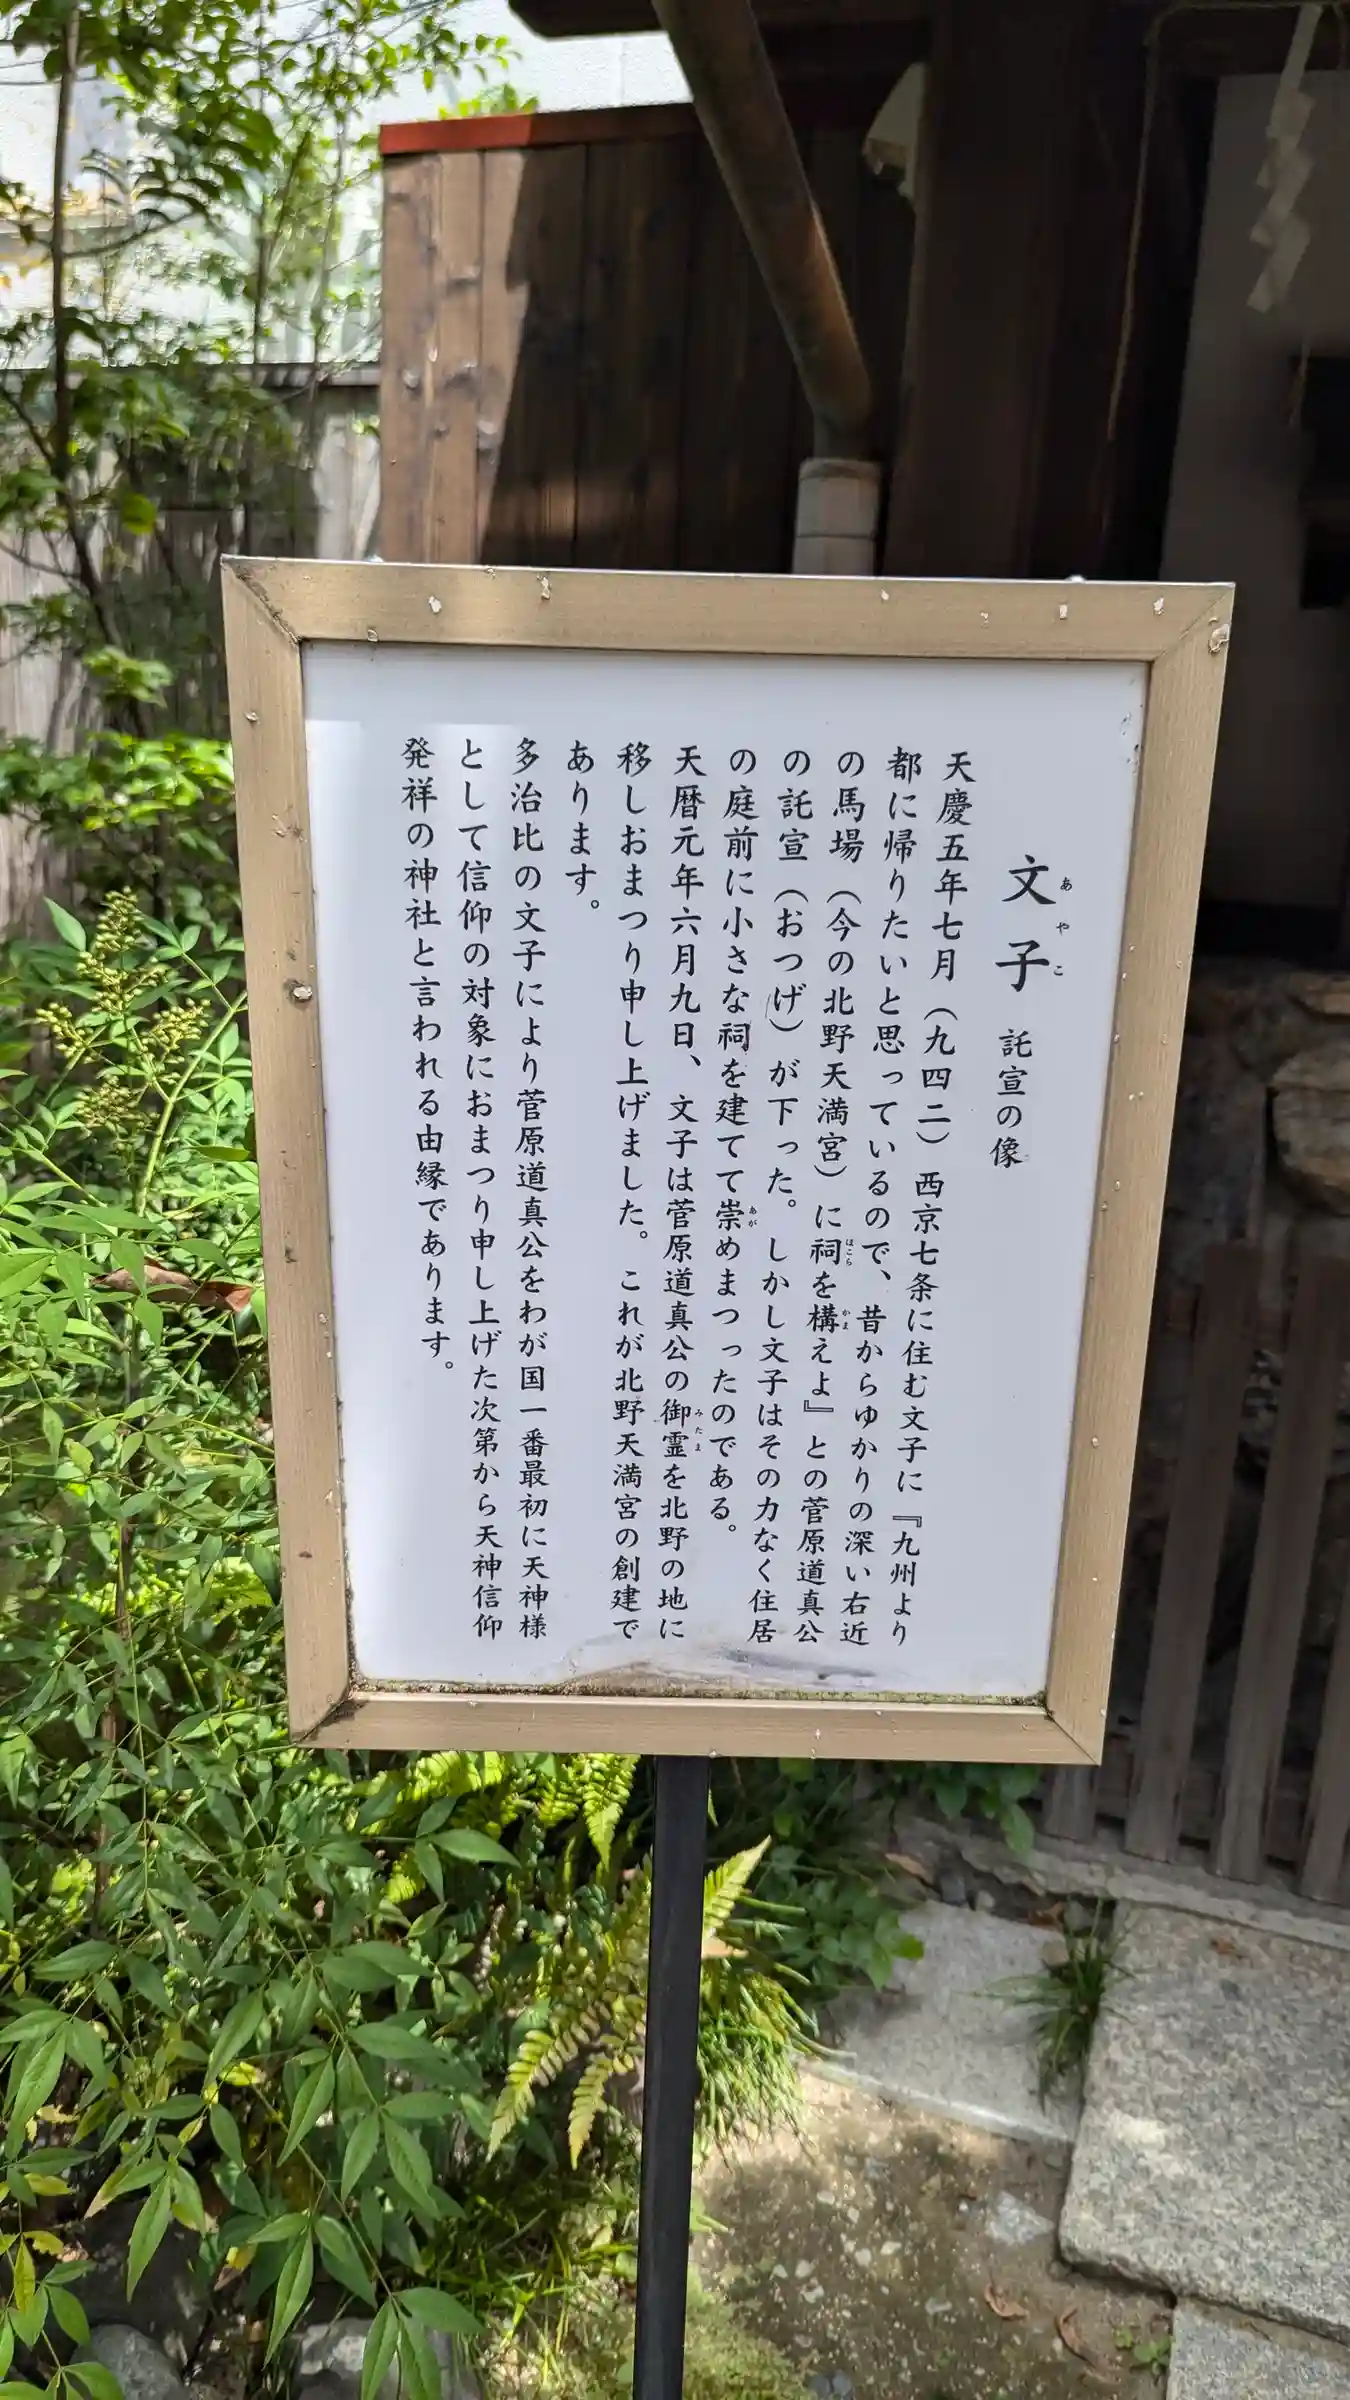 文子 託宣の像
あやこ
天慶五年七月（九四二）西京七条に住む文子に『九州より
都に帰りたいと思っているので、昔からゆかりの深い右近
の馬場（今の北野天満宮）に祠を構えよ』との菅原道真公
ほこら
かま
の託宣（おつげ）が下った。しかし文子はその力なく住居
の庭前に小さな祠を建てて崇めまつったのである。
あが
天暦元年六月九日、文子は菅原道真公の御霊を北野の地に
みたま
移しおまつり申し上げました。これが北野天満宮の創建で
あります。
多治比の文子により菅原道真公をわが国一番最初に天神様
として信仰の対象におまつり申し上げた次第から天神信仰
発祥の神社と言われる由縁であります。